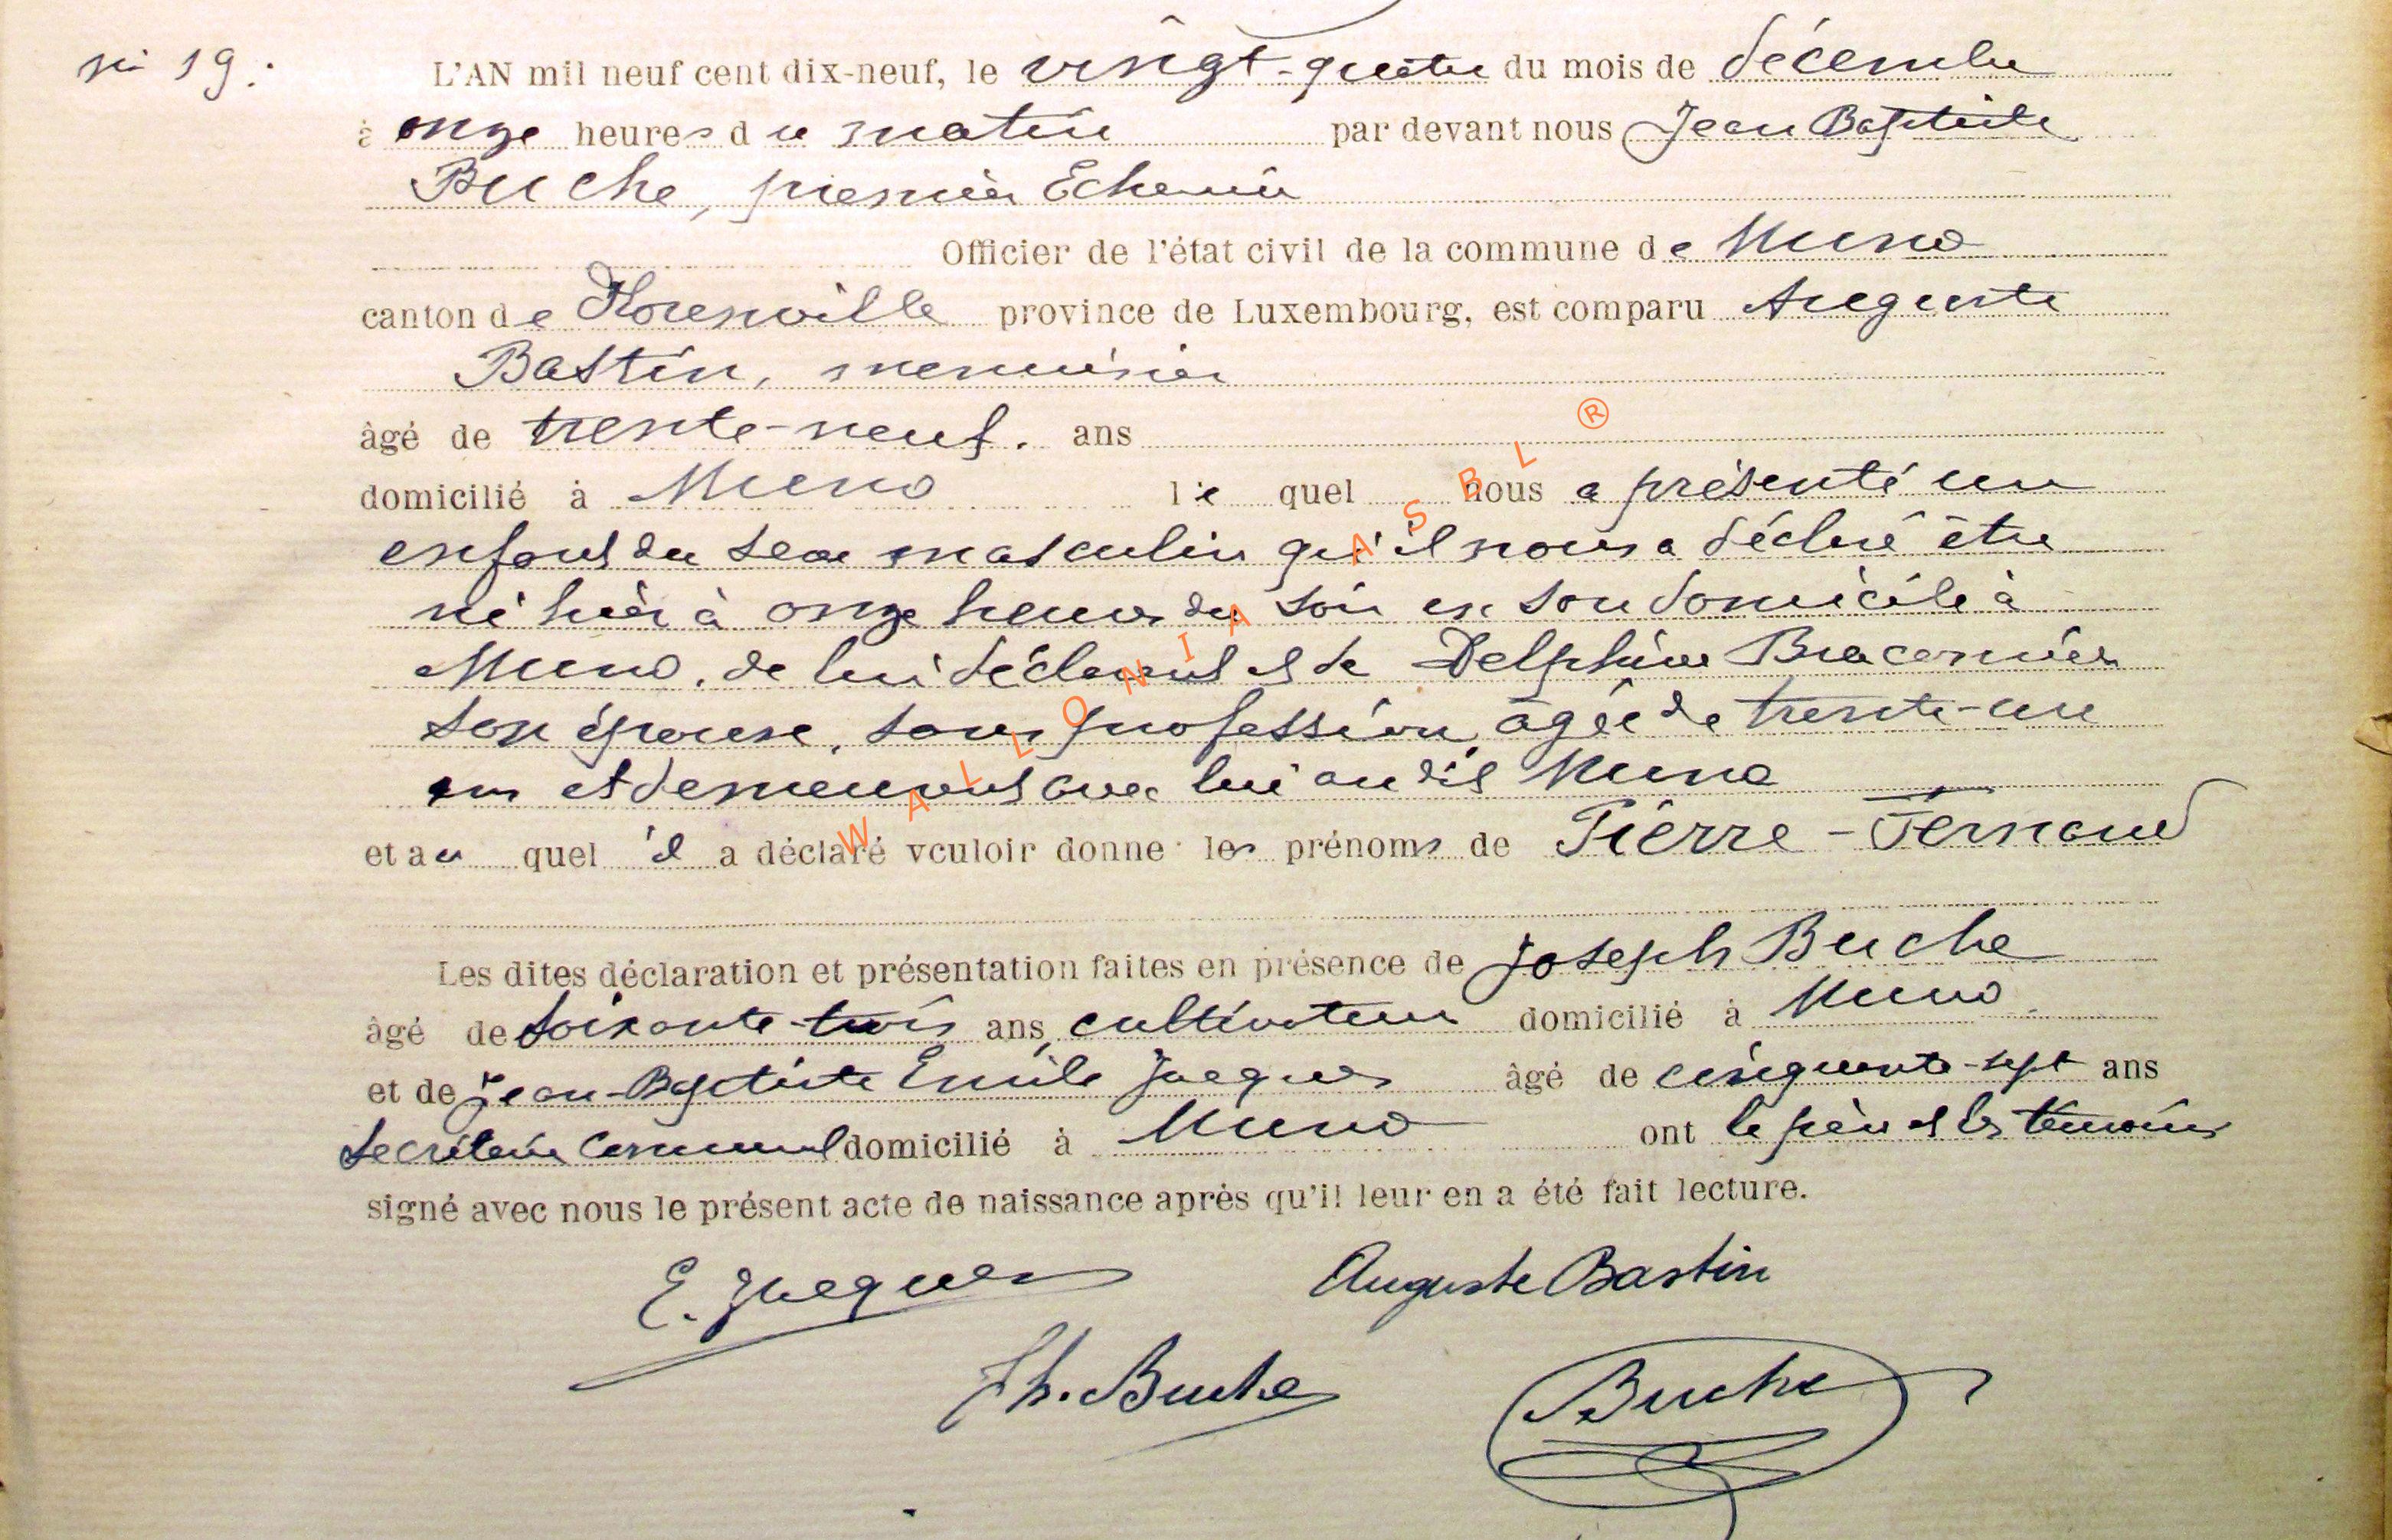 n° 19.
L'AN mil neuf cent dix-neuf, le vingt-quatre du mois de décembre
à onze heures du matin par devant nous Jean Baptiste
Buche, premier Echevin
Officier de l'état civil de la commune de Muno
canton de Florenville province de Luxembourg, est comparu Auguste
Bastin, menuisier
âgé de trente-neuf. ans
domicilié à Muno lequel nous a présenté un
enfant du sexe masculin qu'il nous a déclaré être
né hier à onze heures du soir en son domicile à
Muno, de lui déclarant et de Delphine Braconnier
son épouse, sans profession, âgée de trente-un
ans et demeurant avec lui au dit Muno
et au quel il a déclaré vouloir donner les prénoms de Pierre-Fernand
Les dites déclaration et présentation faites en présence de Joseph Buche
âgé de soixante-trois ans, cultivateur domicilié à Muno.
et de Jean-Baptiste Emile Jacques âgé de cinquante-sept ans
Secrétaire Communal domicilié à Muno ont le père et les témoins
signé avec nous le présent acte de naissance après qu'il leur en a été fait lecture.
E. Jacques Auguste Bastin
Jh. Buche Buche
WALLONIA ASBL ®